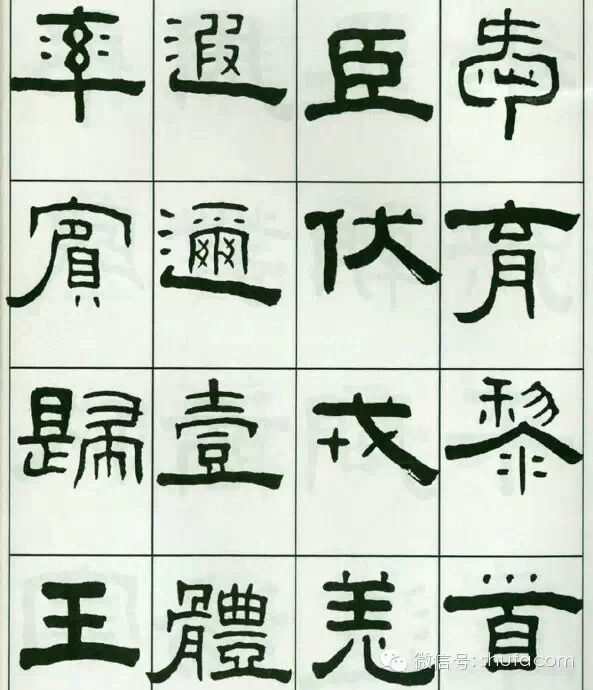 愛育黎首
臣伏戎羌
遐邇壹體
率賓歸王
微信号:shufacom